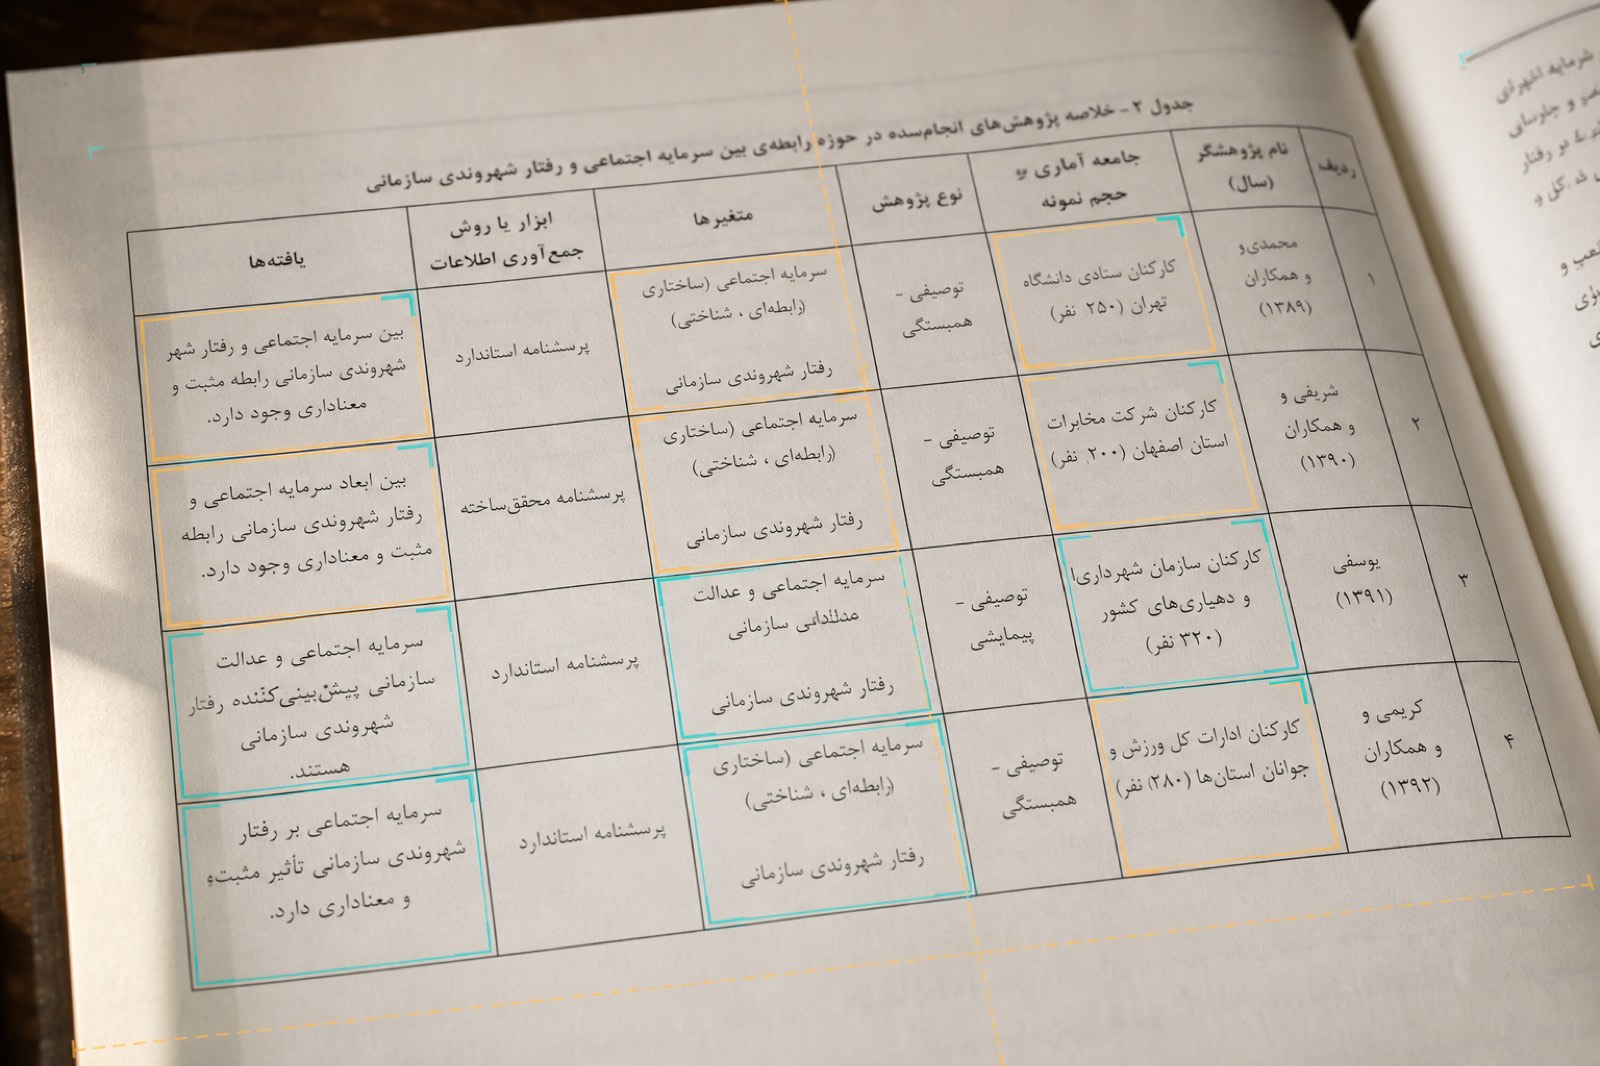 جدول ۲ - خلاصه پژوهش‌های انجام‌سده در حوزه رابطه‌ی بین سرمایه اجتماعی و رفتار شهروندی سازمانی
ردیف
نام پژوهشگر
(سال)
جامعه آماری و
حجم نمونه
نوع پژوهش
متغیرها
ابزار یا روش
جمع‌آوری اطلاعات
یافته‌ها
۱
محمدی‌و
و همکاران
(۱۳۸۹)
کارکنان ستادی دانشگاه
تهران (۲۵۰ نفر)
توصیفی -
همبستگی
سرمایه اجتماعی (ساختاری
(رابطه‌ای ، شناختی)
رفتار شهروندی سازمانی
پرسشنامه استاندارد
بین سرمایه اجتماعی و رفتار شهر
شهروندی سازمانی رابطه مثبت و
معناداری وجود دارد.
۲
شریفی و
و همکاران
(۱۳۹۰)
کارکنان شرکت مخابرات
استان اصفهان (۲۰۰ نفر)
توصیفی -
همبستگی
سرمایه اجتماعی (ساختاری
(رابطه‌ای ، شناختی)
رفتار شهروندی سازمانی
پرسشنامه محقق‌ساخته
بین ابعاد سرمایه اجتماعی و
رفتار شهروندی سازمانی رابطه
مثبت و معناداری وجود دارد.
۳
یوسفی
(۱۳۹۱)
کارکنان سازمان شهرداری‌ا
و دهیاری‌های کشور
(۳۲۰ نفر)
توصیفی -
پیمایشی
سرمایه اجتماعی و عدالت
سازمانی
رفتار شهروندی سازمانی
پرسشنامه استاندارد
سرمایه اجتماعی و عدالت
سازمانی پیش‌بینی‌کننده رفتار
شهروندی سازمانی
هستند.
۴
کریمی و
و همکاران
(۱۳۹۲)
کارکنان ادارات کل ورزش و
جوانان استان‌ها (۲۸۰ نفر)
توصیفی -
همبستگی
سرمایه اجتماعی (ساختاری
(رابطه‌ای ، شناختی)
رفتار شهروندی سازمانی
پرسشنامه استاندارد
سرمایه اجتماعی بر رفتار
شهروندی سازمانی تأثیر مثبت
و معناداری دارد.